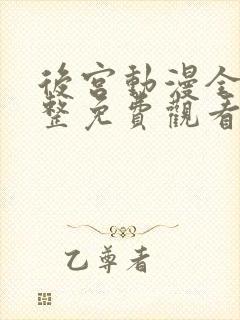 後宮動漫全
整免費觀看
乙尊者